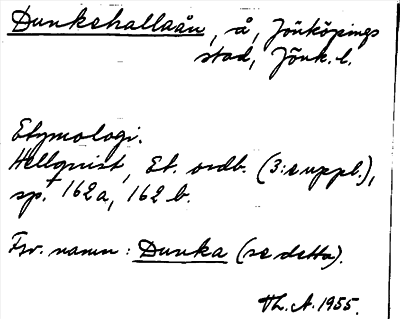 Dunkehallaån, å, Jönköpings
stad, Jönk. l.
Etymologi.
Hellquist, Et. ordb. (3:e uppl.),
sp. 162a, 162 b.
Fsv. namn: Dunka (se detta).
Th. A. 1955.